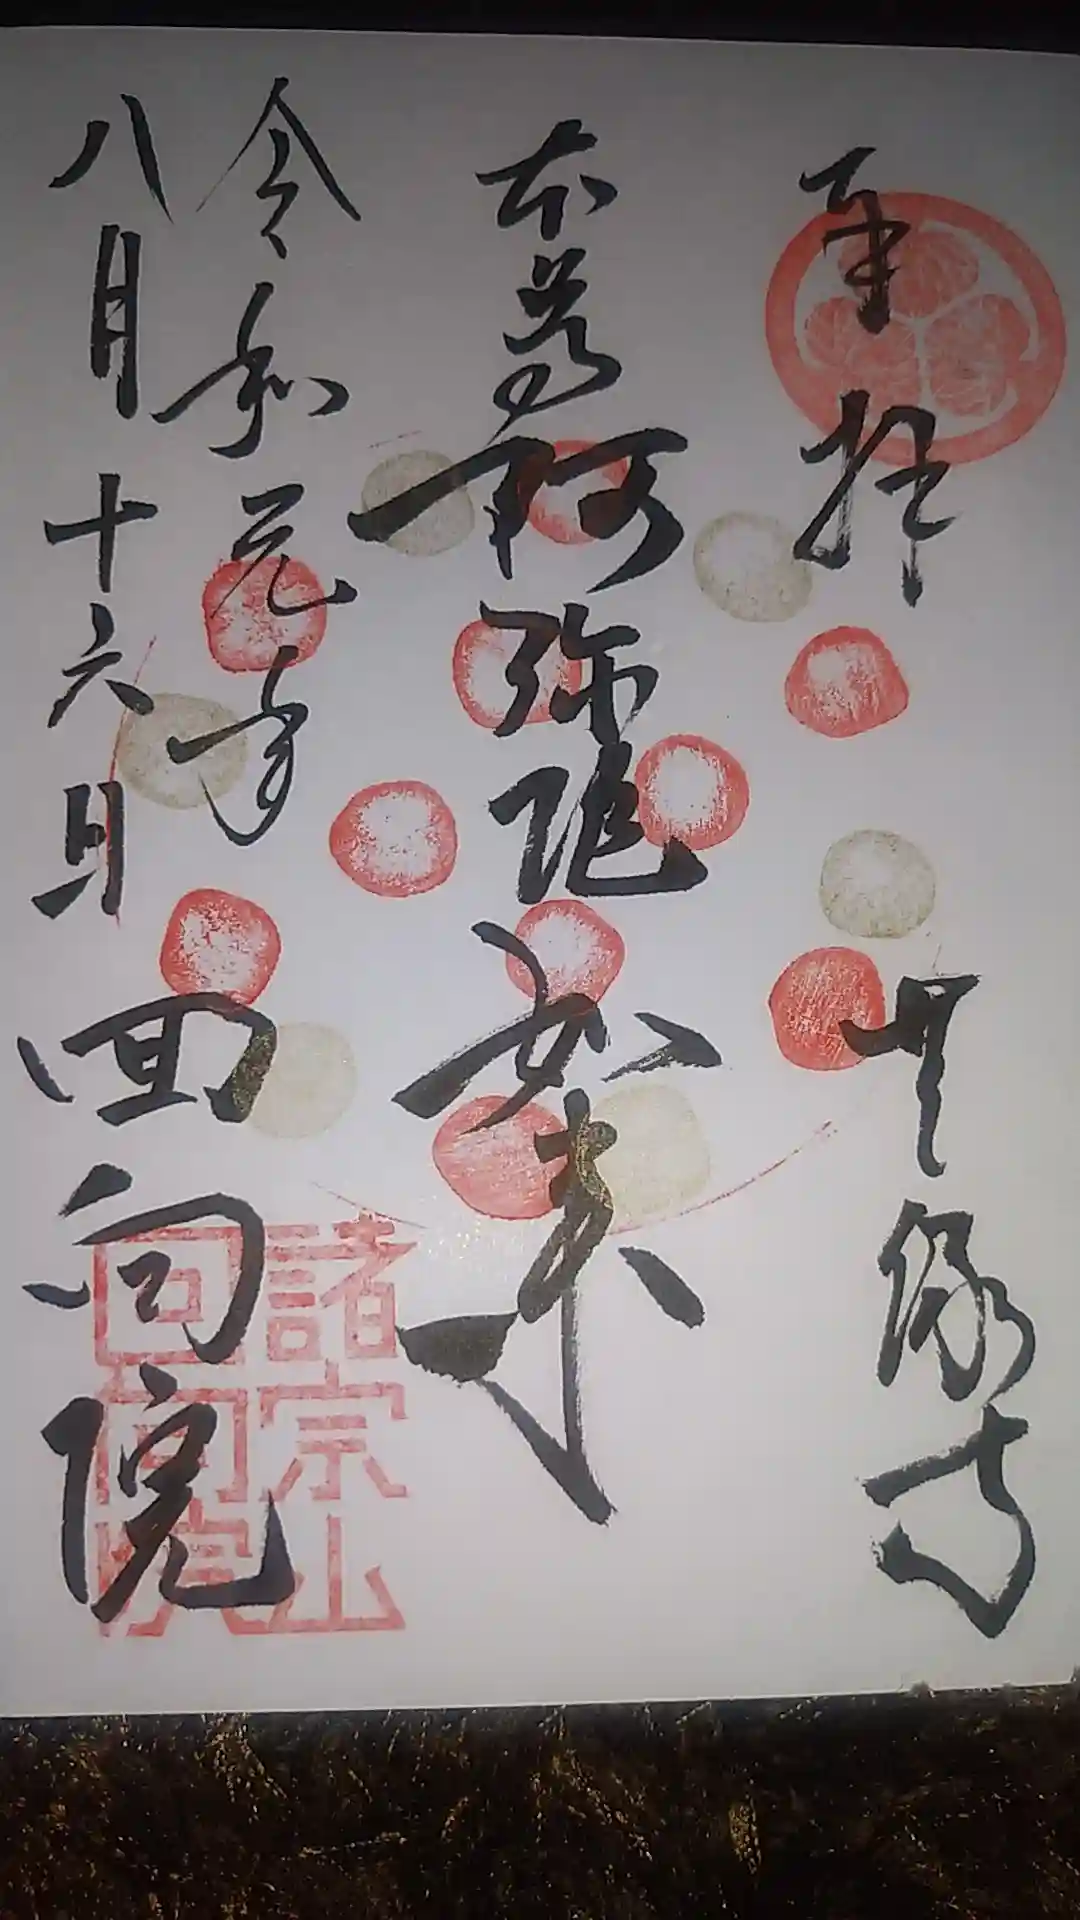 奉拝
無縁寺
本尊
阿弥陀如来
令和元年
八月十六日
回向院
諸宗山
回向院